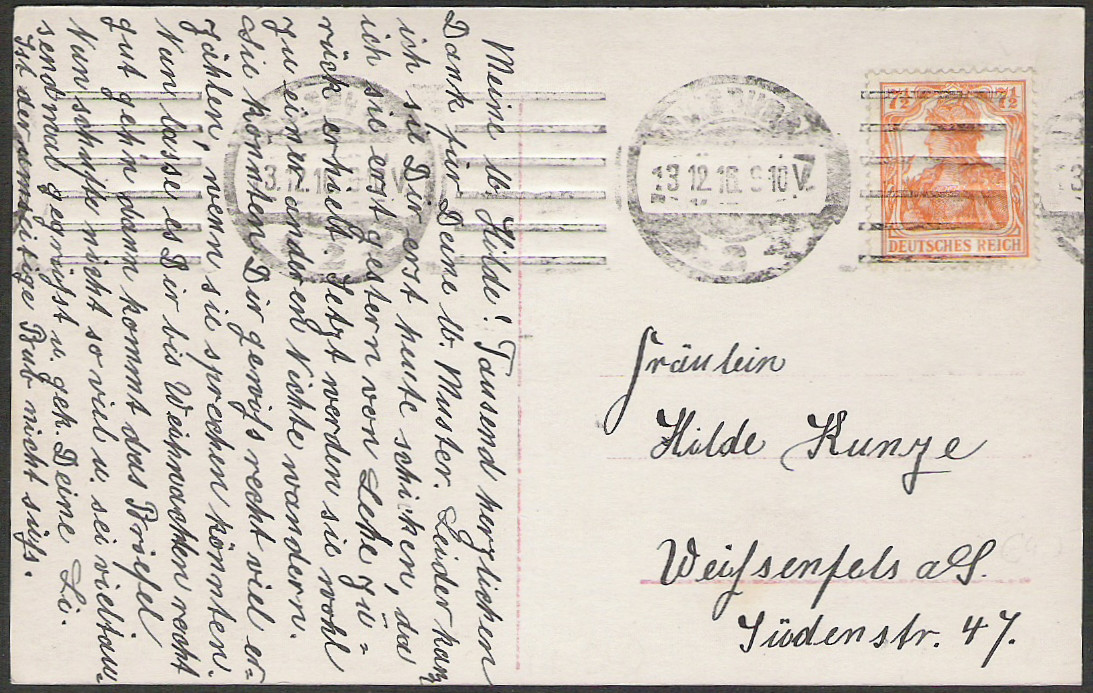 Meine lb. Hilde! Tausend herzlichen
Dank für Deine lb. Muster. Leider kann
ich sie Dir erst heute schicken, da
ich sie erst gestern von Lehe zu=
rück erhielt. Jetzt werden sie wohl
zu einer anderen Nichte wandern.
Sie könnten Dir gewiss recht viel er=
zählen, wenn sie sprechen könnten.
Nun lasse es Dir bis Weihnachten recht
gut gehn dann kommt das Briefel
Nun schufte nicht so viel u. sei vieltau=
sendmal gegrüsst u. gek. Deine Li.
Ist der armselige Bub nicht süss.
13.12.16. 9-10V.
2
13.12.16. 9-10V.
2
7½ 7½
DEUTSCHES REICH
Fräulein
Hilde Kunze
Weissenfels a/S.
Südenstr. 47.